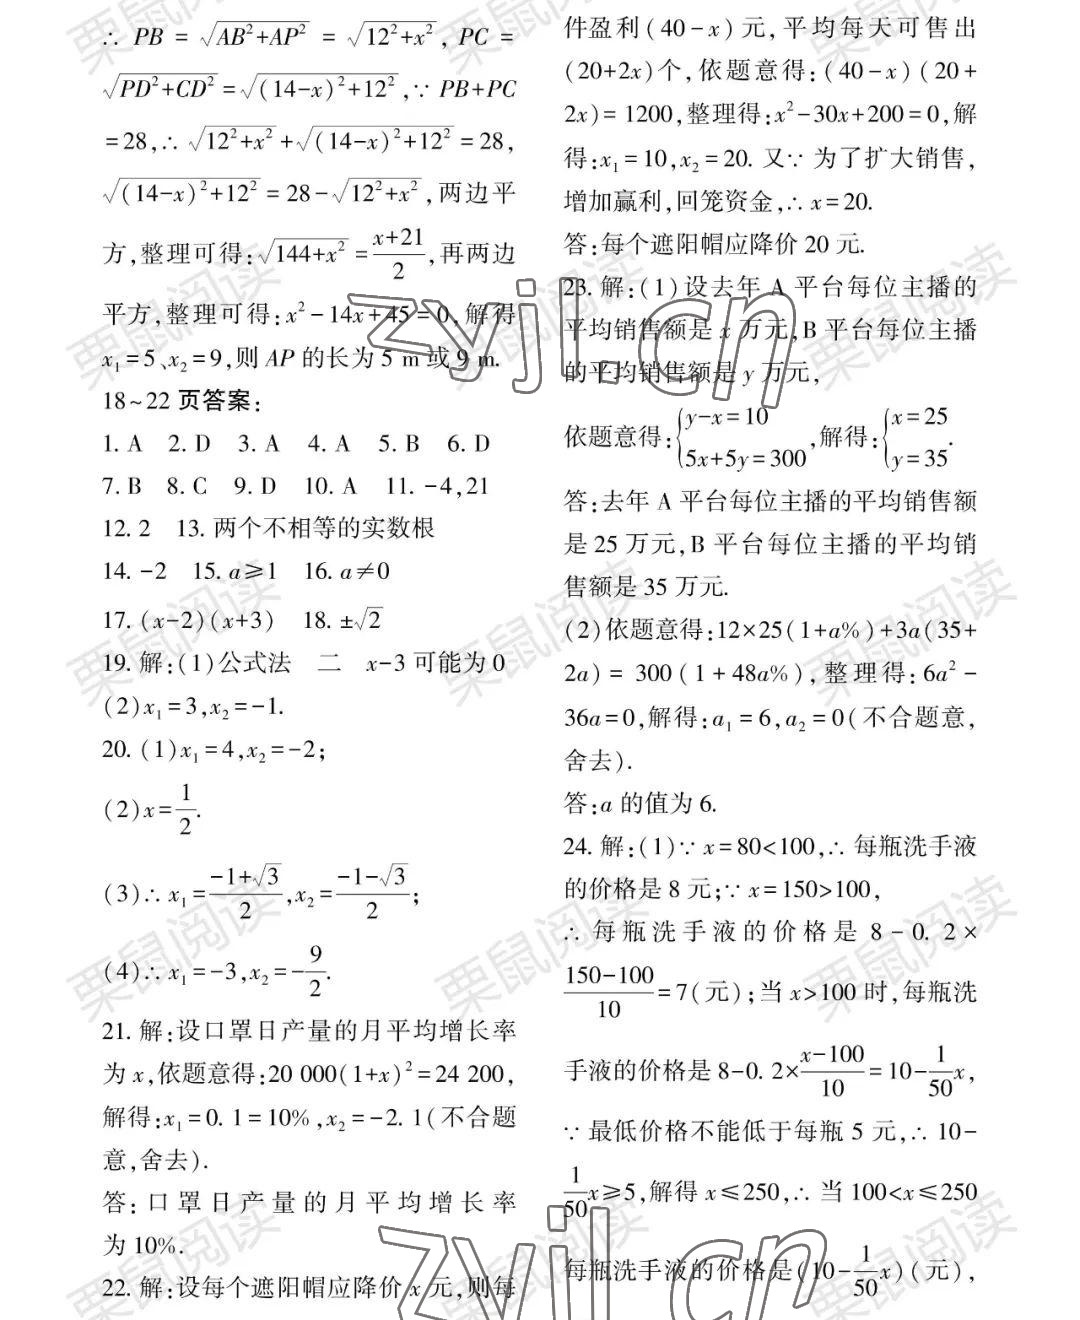 ∴ PB = √(AB²+AP²) = √(12²+x²), PC =
√(PD²+CD²) = √((14-x)²+12²), ∵ PB+PC
=28, ∴ √(12²+x²) + √((14-x)²+12²) = 28,
√((14-x)²+12²) = 28-√(12²+x²), 两边平
方,整理可得:√(144+x²) = (x+21)/2, 再两边
平方,整理可得:x²-14x+45=0,解得
x₁=5、x₂=9,则 AP 的长为 5 m 或 9 m.
18~22 页答案:
1. A 2. D 3. A 4. A 5. B 6. D
7. B 8. C 9. D 10. A 11. -4,21
12. 2 13. 两个不相等的实数根
14. -2 15. a≥1 16. a≠0
17. (x-2)(x+3) 18. ±√2
19. 解:(1)公式法 二 x-3 可能为 0
(2)x₁=3,x₂=-1.
20. (1)x₁=4,x₂=-2;
(2)x=1/2.
(3)∴ x₁=(-1+√3)/2,x₂=(-1-√3)/2;
(4)∴ x₁=-3,x₂=-9/2.
21. 解:设口罩日产量的月平均增长率
为 x,依题意得:20 000(1+x)²=24 200,
解得:x₁=0. 1=10%,x₂=-2. 1(不合题
意,舍去).
答:口罩日产量的月平均增长率
为 10%.
22. 解:设每个遮阳帽应降价 x 元,则每
件盈利(40-x)元,平均每天可售出
(20+2x)个,依题意得:(40-x)(20+
2x)=1200,整理得:x²-30x+200=0,解
得:x₁=10,x₂=20. 又∵ 为了扩大销售,
增加赢利,回笼资金,∴ x=20.
答:每个遮阳帽应降价 20 元.
23. 解:(1)设去年 A 平台每位主播的
平均销售额是 x 万元,B 平台每位主播
的平均销售额是 y 万元,
依题意得:{y-x=10 5x+5y=300,解得:{x=25 y=35.
答:去年 A 平台每位主播的平均销售额
是 25 万元,B 平台每位主播的平均销
售额是 35 万元.
(2)依题意得:12×25(1+a%)+3a(35+
2a)=300(1+48a%),整理得:6a²-
36a=0,解得:a₁=6,a₂=0(不合题意,
舍去).
答:a 的值为 6.
24. 解:(1)∵ x=80<100,∴ 每瓶洗手液
的价格是 8 元;∵ x=150>100,
∴ 每瓶洗手液的价格是 8-0. 2×
(150-100)/10=7(元);当 x>100 时,每瓶洗
手液的价格是 8-0. 2×(x-100)/10=10-1/50x,
∵ 最低价格不能低于每瓶 5 元,∴ 10-
1/50x≥5,解得 x≤250,∴ 当 100<x≤250
每瓶洗手液的价格是(10-1/50x)(元),
zyjl.cn
zyjl.cn
栗鼠阅读
栗鼠阅读
栗鼠阅读
栗鼠阅读
栗鼠阅读
栗鼠阅读
栗鼠阅读
栗鼠阅读
栗鼠阅读
栗鼠阅读
栗鼠阅读
栗鼠阅读